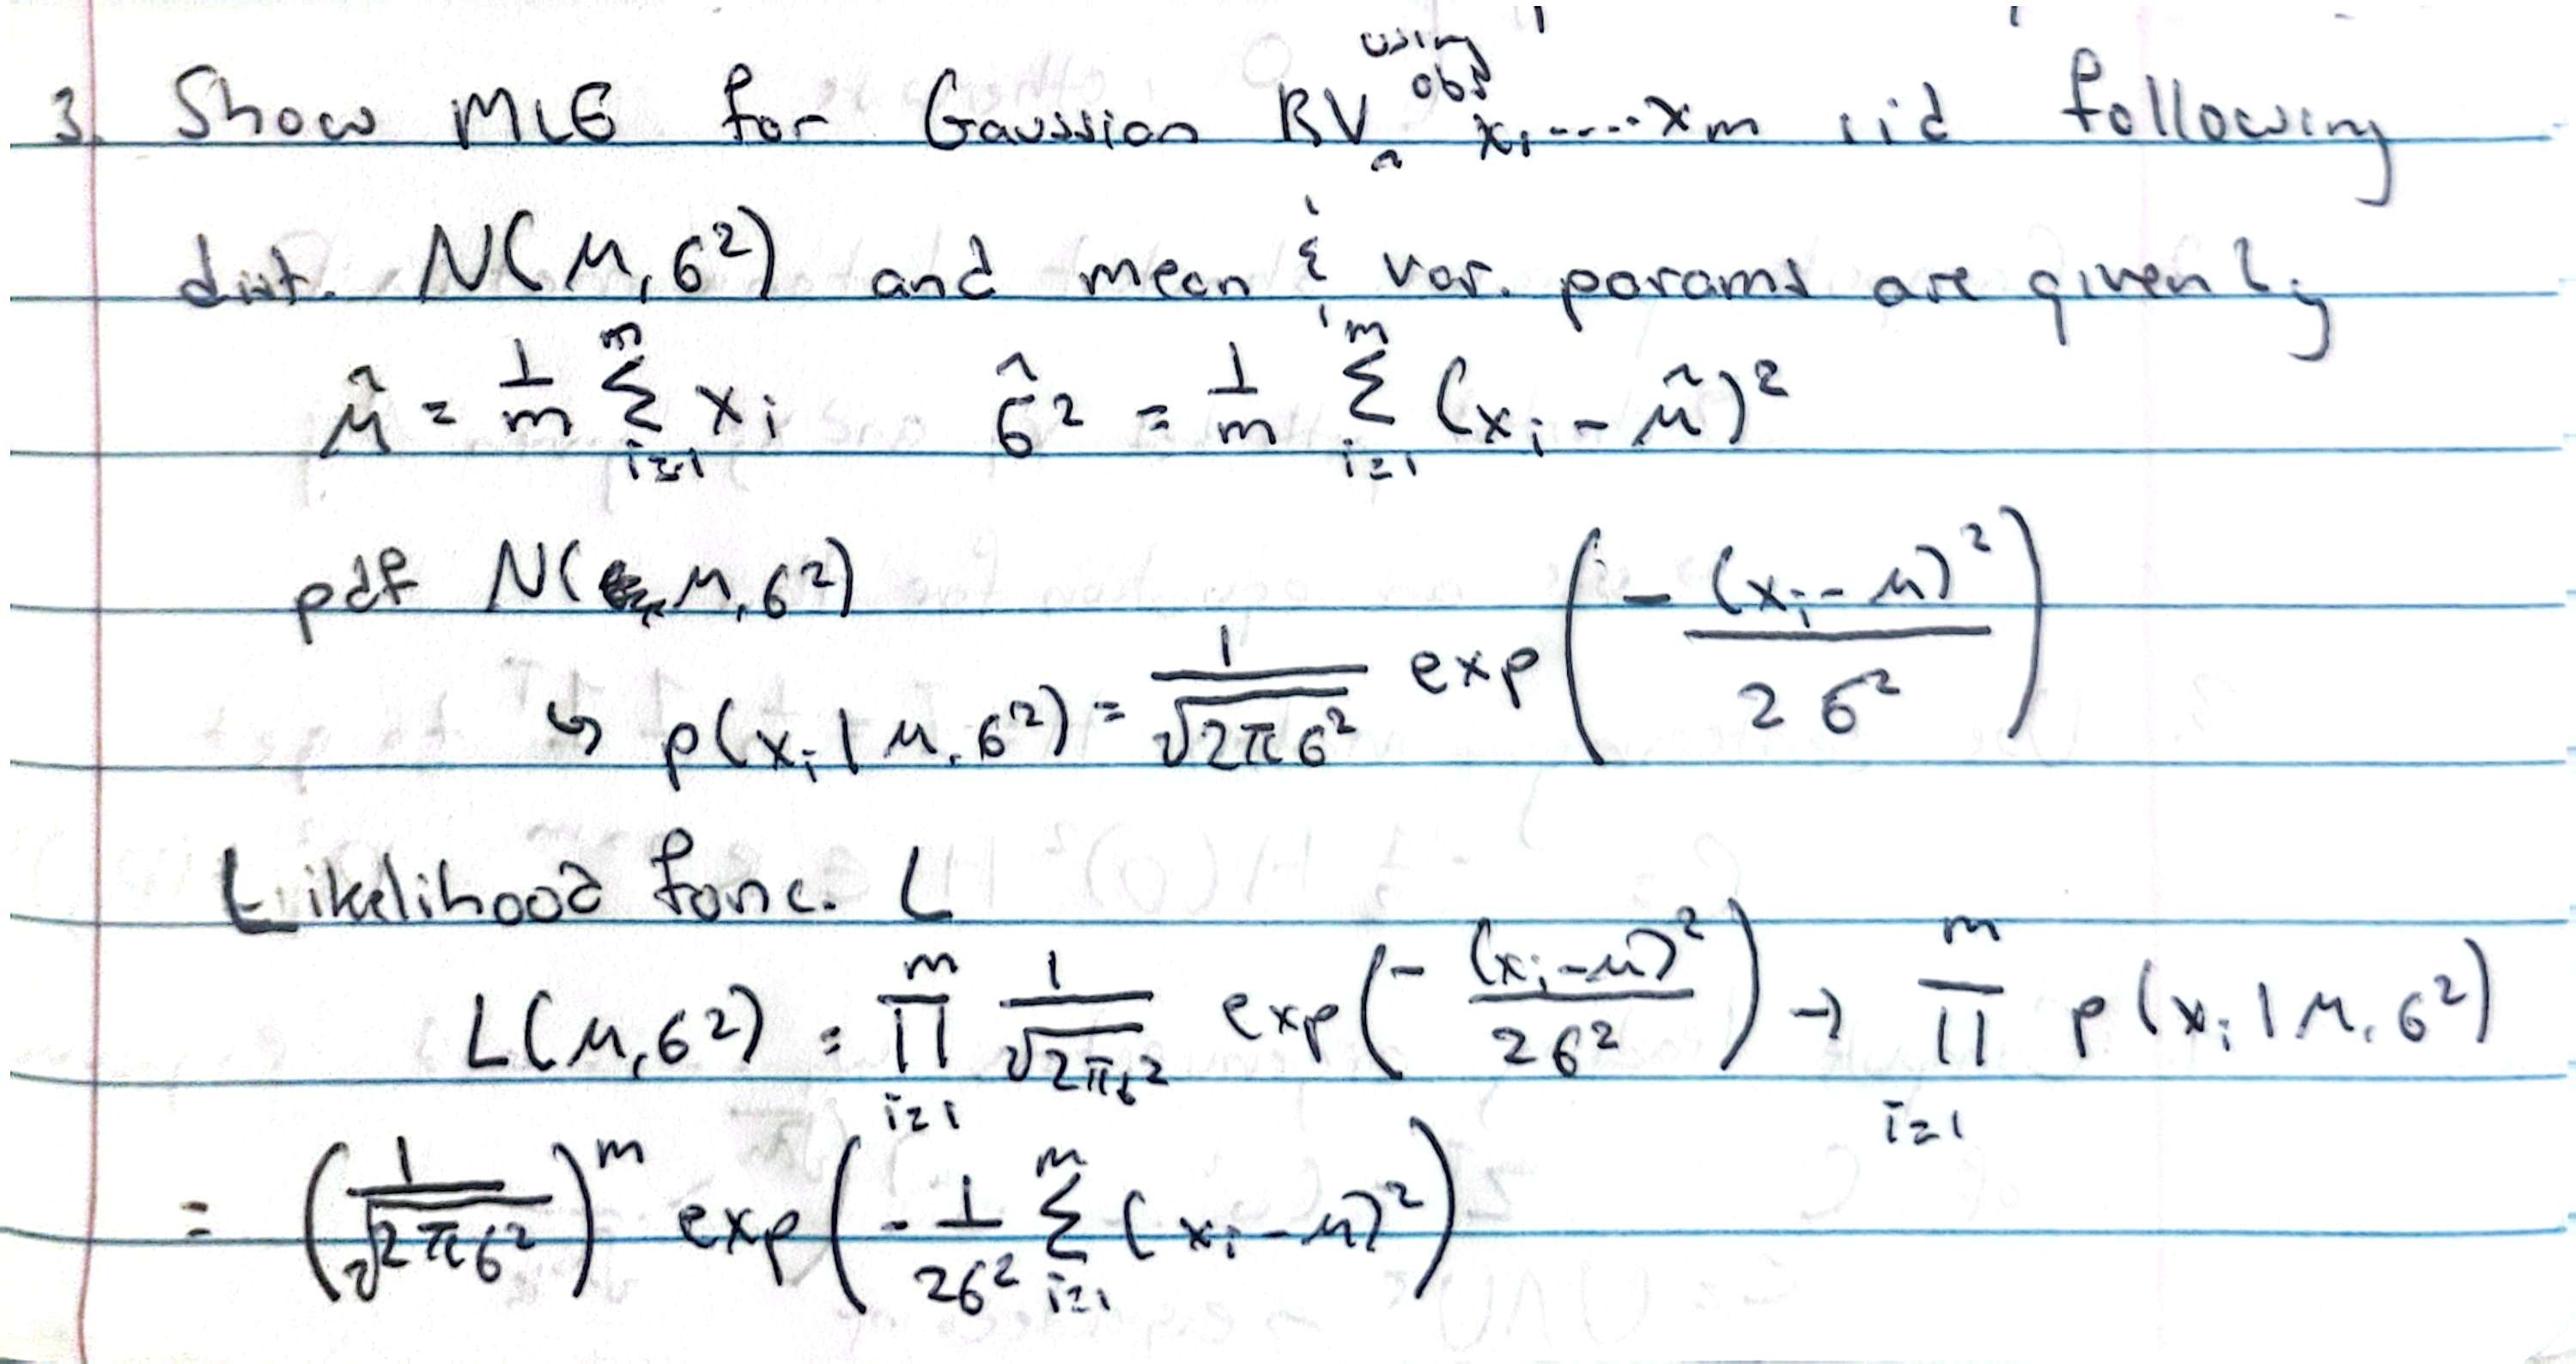 3. Show MLE for Gaussian RV using obs x₁.....xₘ iid following
dist. N(μ, σ²) and mean & var. params are given by
μ̂ = 1/m Σᵢ₌₁ᵐ xᵢ   σ̂² = 1/m Σᵢ₌₁ᵐ (xᵢ - μ̂)²
pdf N(μ, σ²)
↳ p(xᵢ | μ, σ²) = 1/√(2πσ²) exp(- (xᵢ - μ)² / 2σ²)
Likelihood func. L
L(μ, σ²) = ∏ᵢ₌₁ᵐ 1/√(2πσ²) exp(- (xᵢ - μ)² / 2σ²) → ∏ᵢ₌₁ᵐ p(xᵢ | μ, σ²)
= (1/√(2πσ²))ᵐ exp(- 1/2σ² Σᵢ₌₁ᵐ (xᵢ - μ)²)